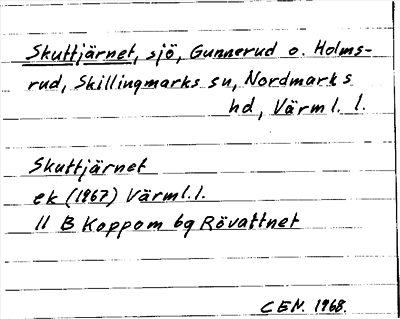 Skuttjärnet, sjö, Gunnerud o. Holms-
rud, Skillingmarks sn, Nordmarks
hd, Värml. l.
Skuttjärnet
ek (1967) Värml.l.
11 B Koppom 6g Rövattnet
CEN. 1968.